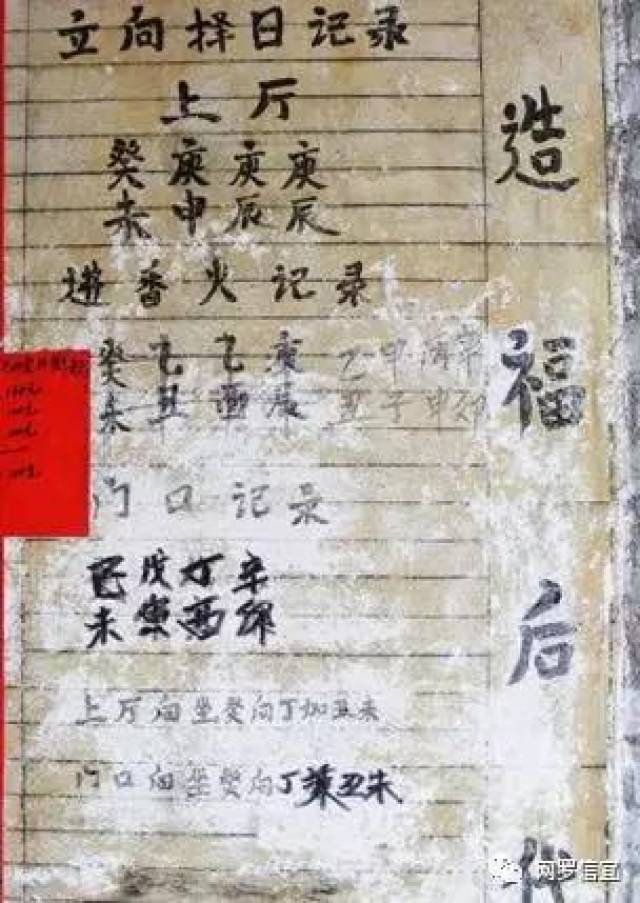 立向择日记录
上厅
癸庚庚庚
未申辰辰
香火记录
癸乙乙庚 乙甲丙辛
未丑酉辰 丑子申卯
门口记录
己戊丁辛
未寅酉卯
上厅向坐癸向丁加丑未
门口向坐癸向丁兼丑未
造福后代
网罗信宜